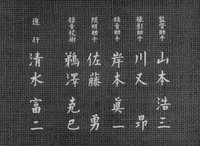 監督助手 山本浩三
撮影助手 川又昂
録音助手 岸本真一
照明助手 佐藤勇
録音技術 鵜澤克巳
進行 清水富二